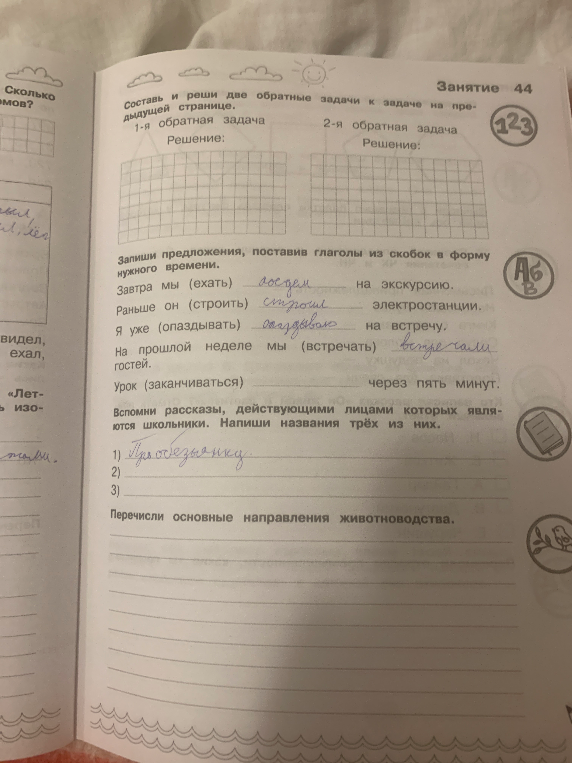 Сколько
Занятие 44
Составь и реши две обратные задачи к задаче на пре-
дыдущей странице.
123
1-я обратная задача 2-я обратная задача
Решение: Решение:
Запиши предложения, поставив глаголы из скобок в форму
нужного времени.
АБВ
Завтра мы (ехать) на экскурсию.
Раньше он (строить) строил электростанции.
Я уже (опаздывать) на встречу.
На прошлой неделе мы (встречать) встречали
гостей.
Урок (заканчиваться) через пять минут.
Вспомни рассказы, действующими лицами которых явля-
ются школьники. Напиши названия трёх из них.
1) Про обезьянку
2)
3)
Перечисли основные направления животноводства.
видел,
ехал,
«Лет-
изо-